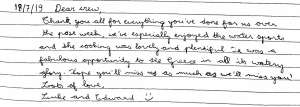 18/7/19 Dear crew,
Thank you all for everything you've done for us over
the past week, we've especially enjoyed the water sports
and the cooking was lovely and plentiful. It was a
fabulous opportunity to see Greece in all its watery
glory. Hope you'll miss us as much as we'll miss you!
Lots of love,
Luke and Edward